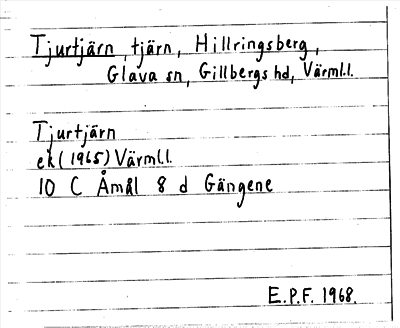 Tjurtjärn, tjärn, Hillringsberg,
Glava sn, Gillbergs hd, Värml.l.
Tjurtjärn
ek (1965) Värml.l.
10 C Åmål 8 d Gängene
E.P.F. 1968.